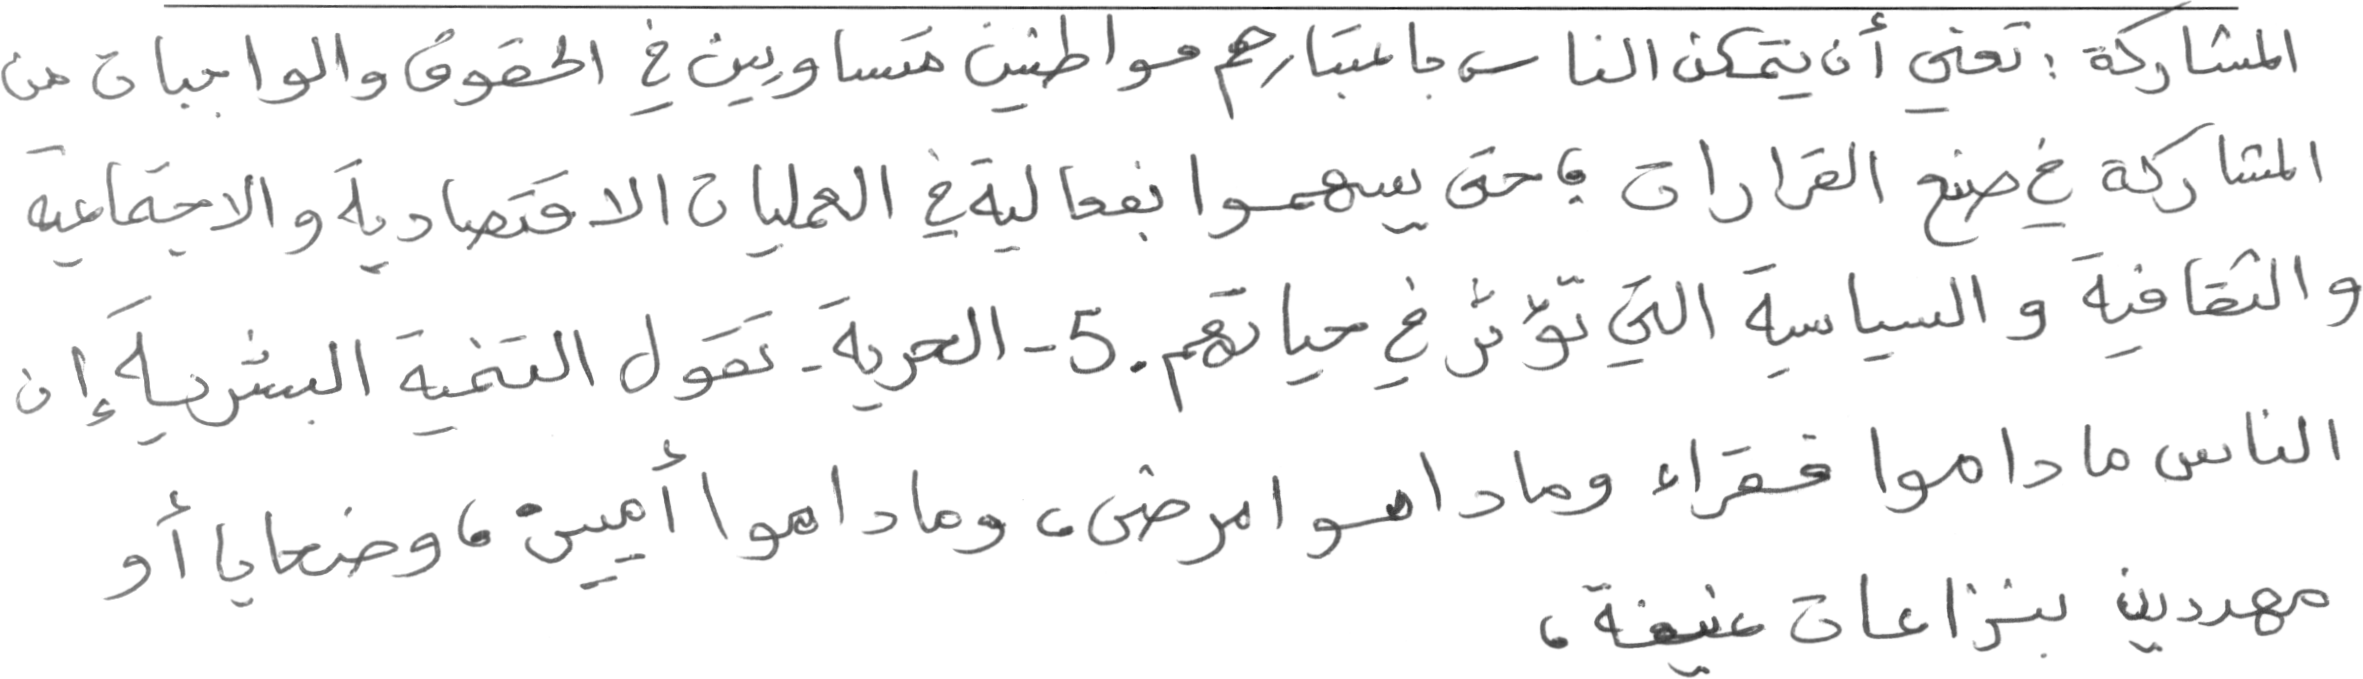 المشاركة : تعني أن يتمكن الناس باعتبارهم مواطنين متساويين في الحقوق والواجبات من
المشاركة في صنع القرارات ، حتى يسهموا بفعالية في العمليات الاقتصادية والاجتماعية
والثقافية والسياسية التي تؤثر في حياتهم . 5 - الحرية - تقول التنمية البشرية إن
الناس ما داموا فقراء وما داموا مرضى ، وما داموا أميين ، وضحايا أو
مهددين بنزاعات عنيفة ،